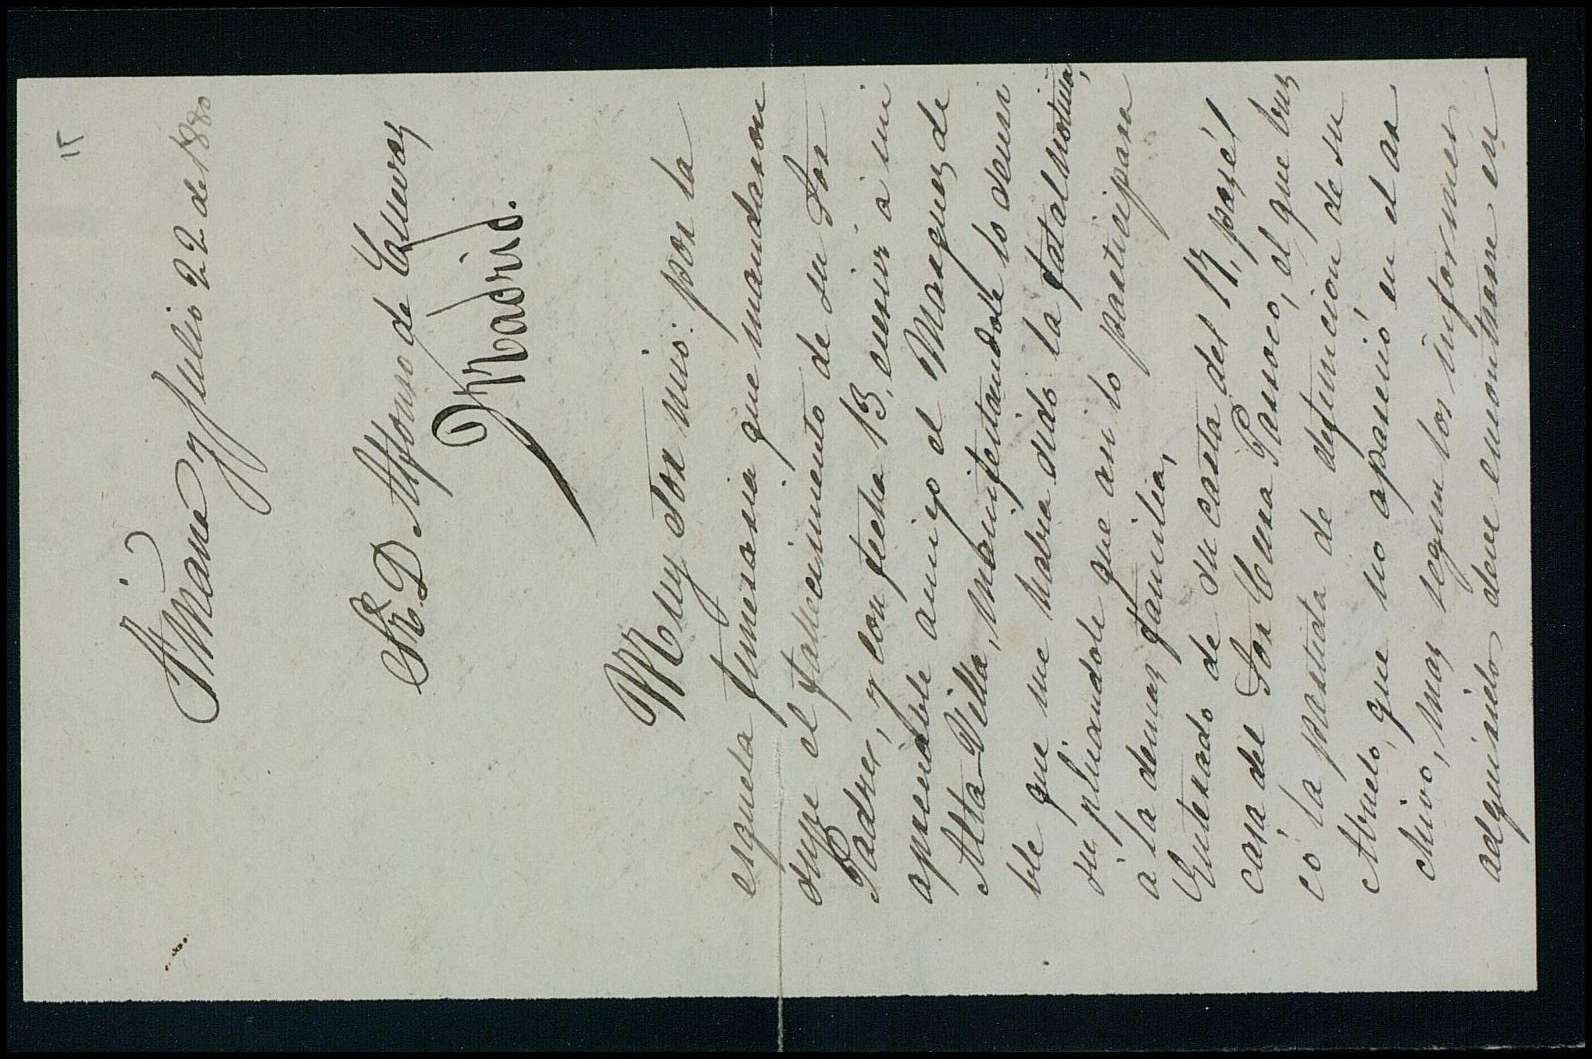 15
Triana y Julio 22 de 1880
Sr. D. Alfonso de Cuevas
Madrid.
Muy Sor mio: por la
esquela funeraria que mandaron
supe el fallecimiento de su Sor
Padre, y con fecha 13, escrivi a mi
apreciable amigo el Marques de
Alta-Villa, manifestandole lo sensi
ble que me habia sido la fatal noticia,
supliandole que asi lo participara
a la demas familia,
Enterado de su carta del 17, pasé'l
casa del Sor Cura Parroco, el que bus
có la partida de defuncion de su
Abuelo, que no aparecio en el ar
chivo, mas segun los informes
adquiridos deve encontrarse en